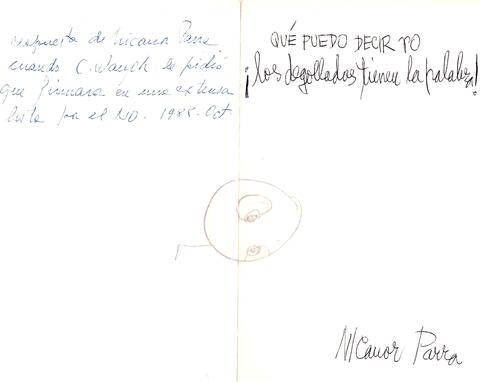 respuesta de Nicanor Parra
cuando C. Wauch le pidió
que firmara en una extensa
lista por el NO. 1988. Oct.
QUÉ PUEDO DECIR YO
¡los degollados tienen la palabra!
NIcanor Parra